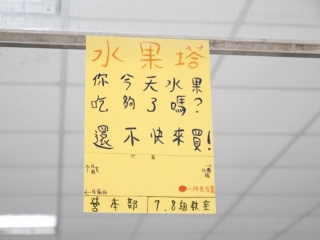 水果塔
你今天水果
吃夠了嗎?
還不快來買!
營本部 7.8組教室